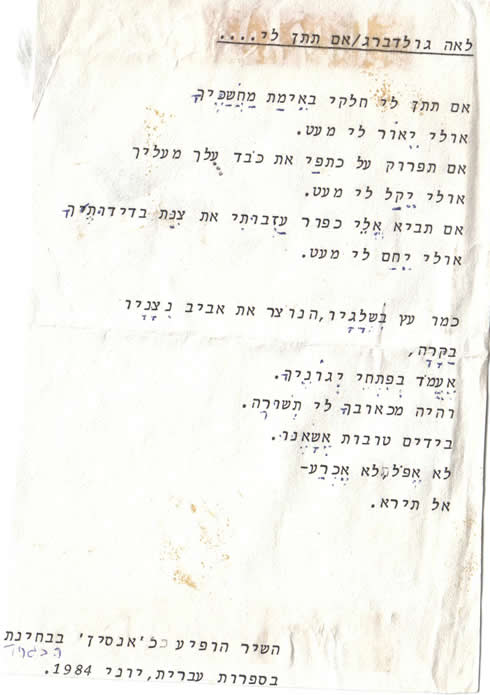 לאה גולדברג/אם תתן לי....
אם תתן לי חלקי בְּאֵימַת מַחֲשַׁכֶּיךָ
אולי יֵאוֹר לי מעט.
אם תפרוק על כתפַי את כֹּבד עֻלך מעליך
אולי יֵקַל לי מעט.
אם תביא אֱלֵי כפור עַזְבוּתִי את צִנַּת בדידוּתֶיךָ
אולי יֵחַם לי מעט.
כמו עץ בִּשְׁלָגָיו,הנוצר את אביב נִצָּנָיו
בַּקָּרָה,
אֶעֱמֹד בְּפִתְחֵי יְגוֹנֶיךָ.
והיה מכאובךָ לי תְּשׁוּרָה.
בידים טובות אֶשָּׂאֶנּוּ.
לא אֶפֹּל,לא אֶכְרַע-
אל תירא.
השיר הופיע כ'אנסין' בבחינת
הבגרות
בספרות עברית,יוני 1984.